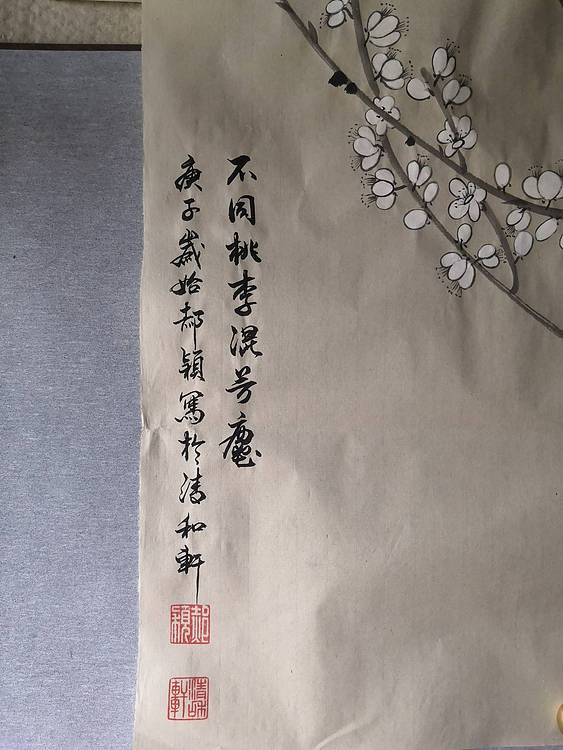 不同桃李混芳塵
庚子歲始郝穎寫於清和軒
郝穎
清咊軒